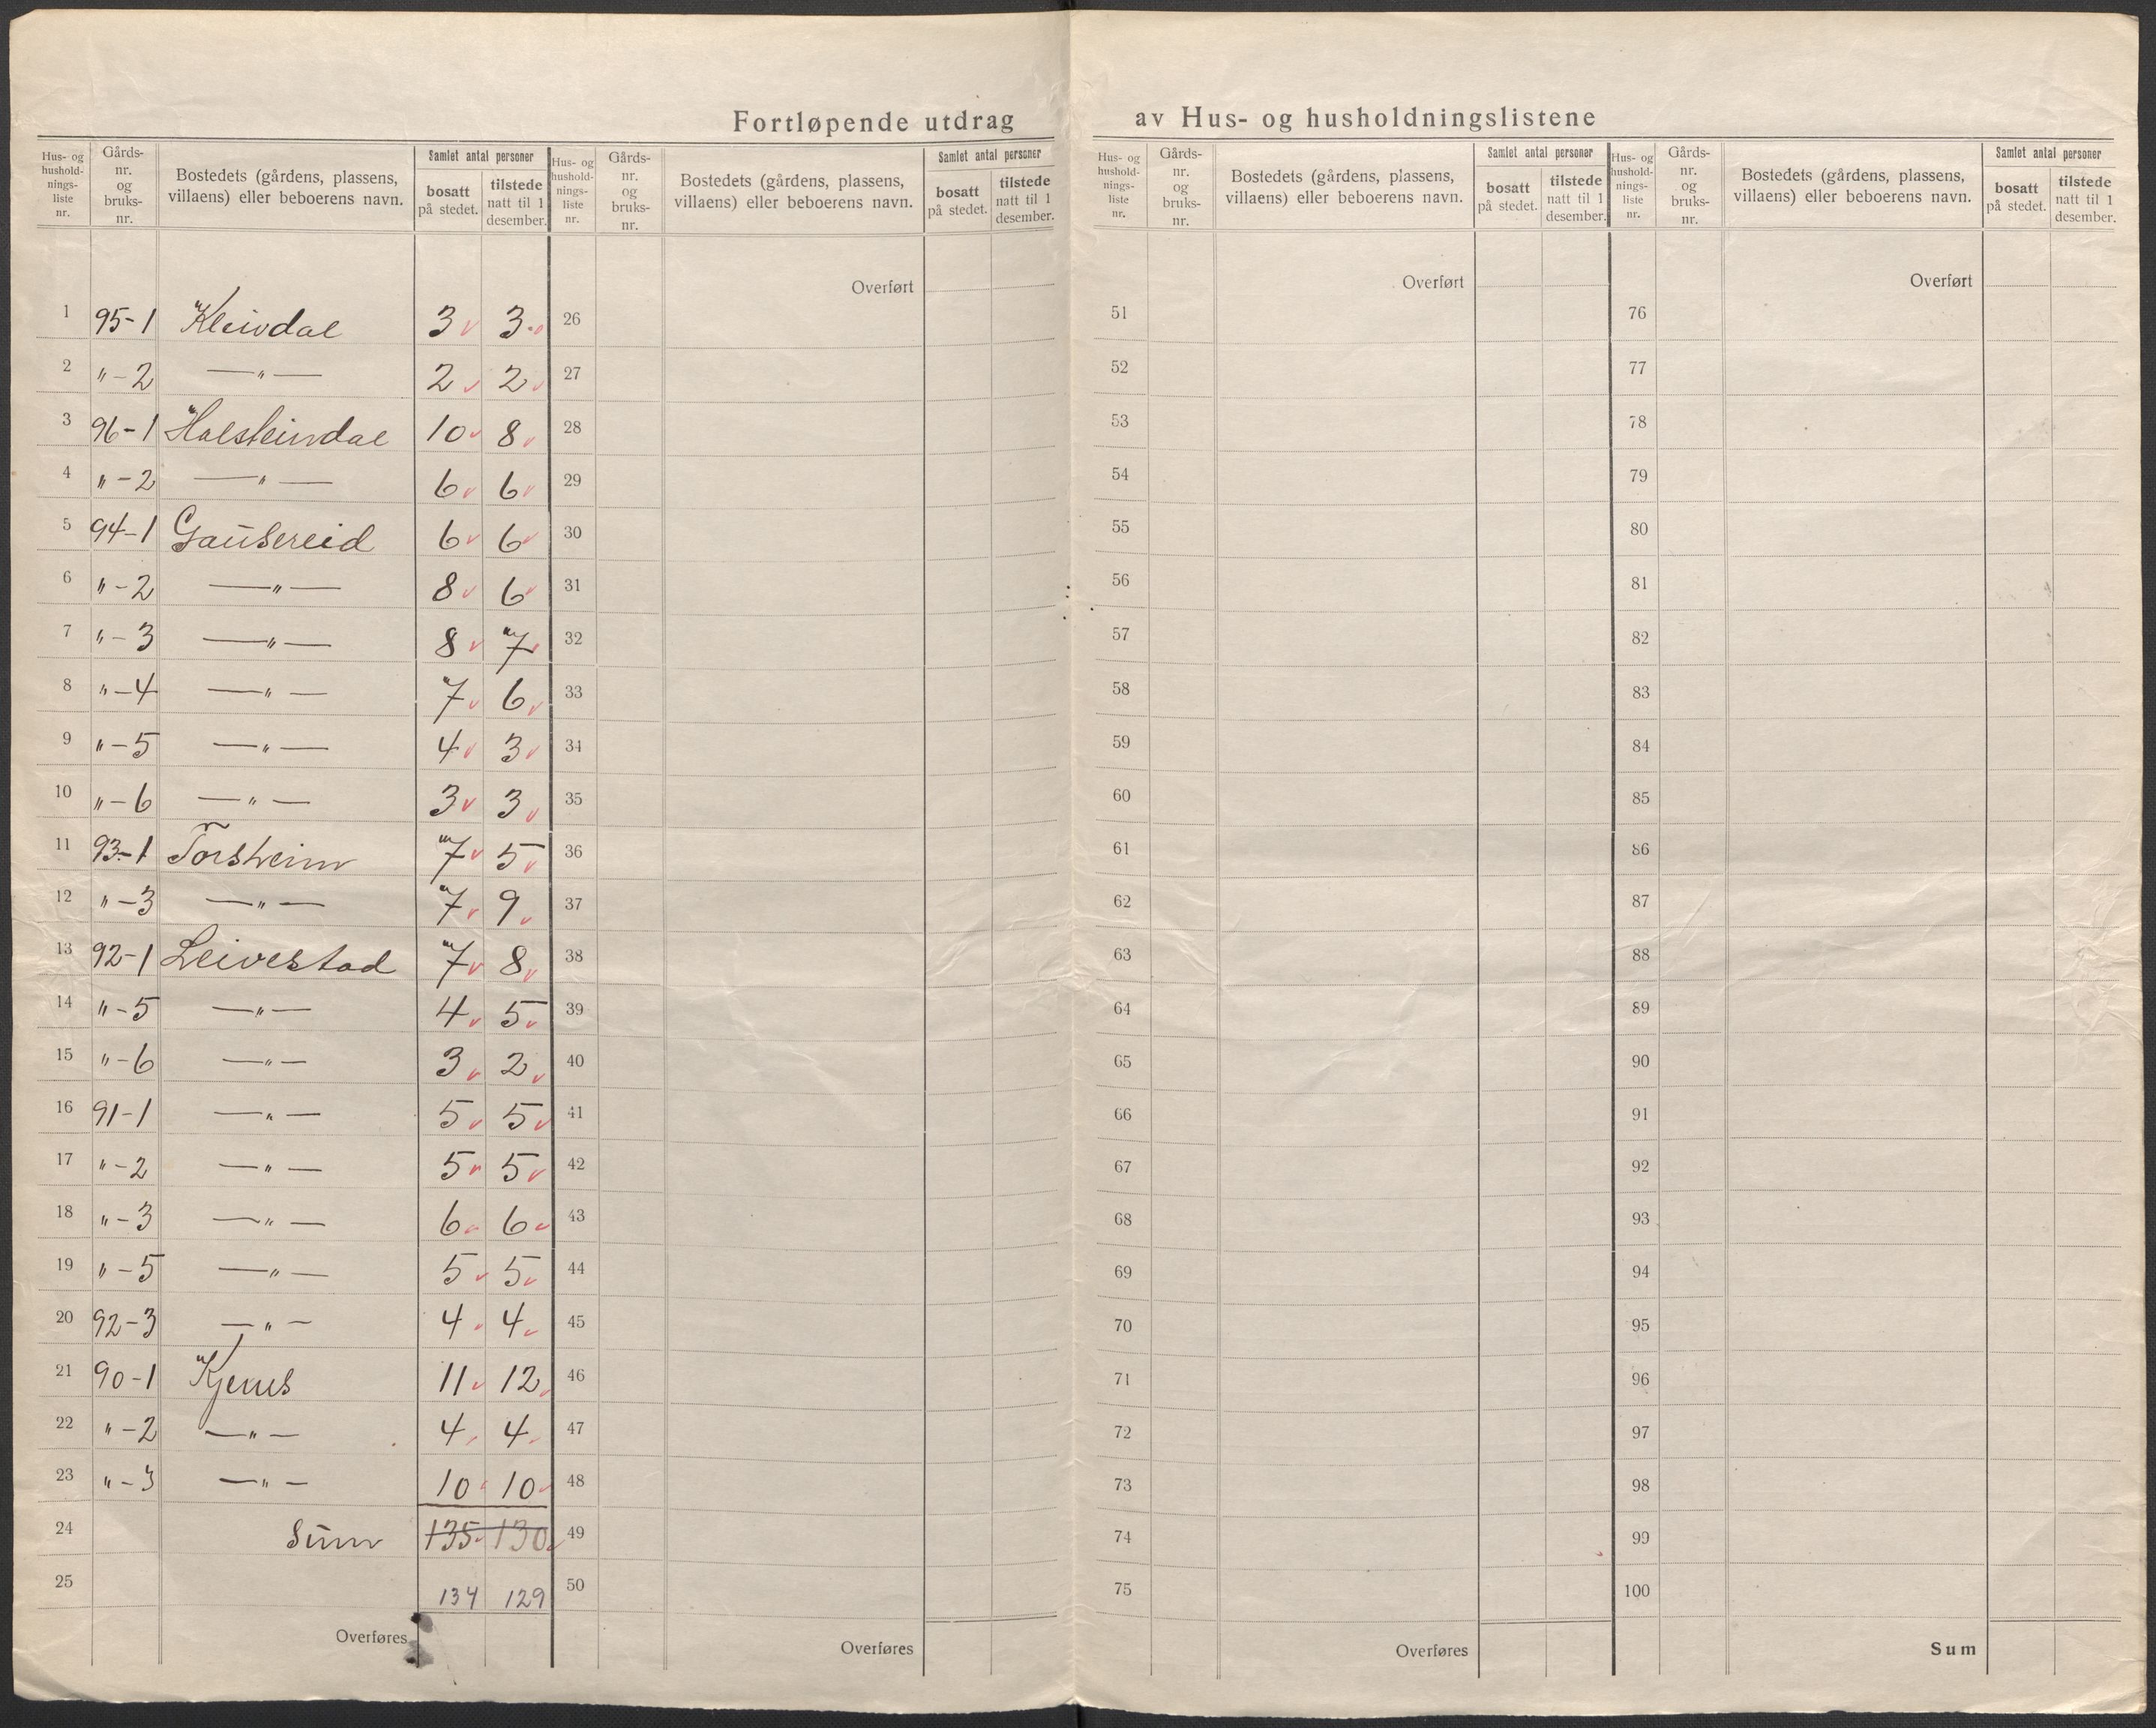 Fortløpende utdrag av Hus- og husholdningslistene
Hus- og husholdnings-liste nr. Gårds-nr. og bruks-nr. Bostedets (gårdens, plassens, villaens) eller beboerens navn. Samlet antal personer bosatt på stedet. tilstede natt til 1 desember.
1 95-1 Kleivdal 3 3
2 " - 2 — " — 2 2
3 96-1 Halsteindal 10 8
4 " - 2 — " — 6 6
5 94-1 Gausereid 6 6
6 " - 2 — " — 8 6
7 " - 3 — " — 8 7
8 " - 4 — " — 7 6
9 " - 5 — " — 4 3
10 " - 6 — " — 3 3
11 93-1 Torsheim 7 5
12 " - 3 — " — 7 9
13 92-1 Leivestad 7 8
14 " - 5 — " — 4 5
15 " - 6 — " — 3 2
16 91-1 — " — 5 5
17 " - 2 — " — 5 5
18 " - 3 — " — 6 6
19 " - 5 — " — 5 5
20 92-3 — " — 4 4
21 90-1 11 12
22 " - 2 — " — 4 4
23 " - 3 — " — 10 10
24 Sum 135 130
25 134 129
Overføres
Hus- og husholdnings-liste nr. Gårds-nr. og bruks-nr. Bostedets (gårdens, plassens, villaens) eller beboerens navn. Samlet antal personer bosatt på stedet. tilstede natt til 1 desember.
Overført
26
27
28
29
30
31
32
33
34
35
36
37
38
39
40
41
42
43
44
45
46
47
48
49
50
Overføres
Hus- og husholdnings-liste nr. Gårds-nr. og bruks-nr. Bostedets (gårdens, plassens, villaens) eller beboerens navn. Samlet antal personer bosatt på stedet. tilstede natt til 1 desember.
Overført
51
52
53
54
55
56
57
58
59
60
61
62
63
64
65
66
67
68
69
70
71
72
73
74
75
Overføres
Hus- og husholdnings-liste nr. Gårds-nr. og bruks-nr. Bostedets (gårdens, plassens, villaens) eller beboerens navn. Samlet antal personer bosatt på stedet. tilstede natt til 1 desember.
Overført
76
77
78
79
80
81
82
83
84
85
86
87
88
89
90
91
92
93
94
95
96
97
98
99
100
Sum